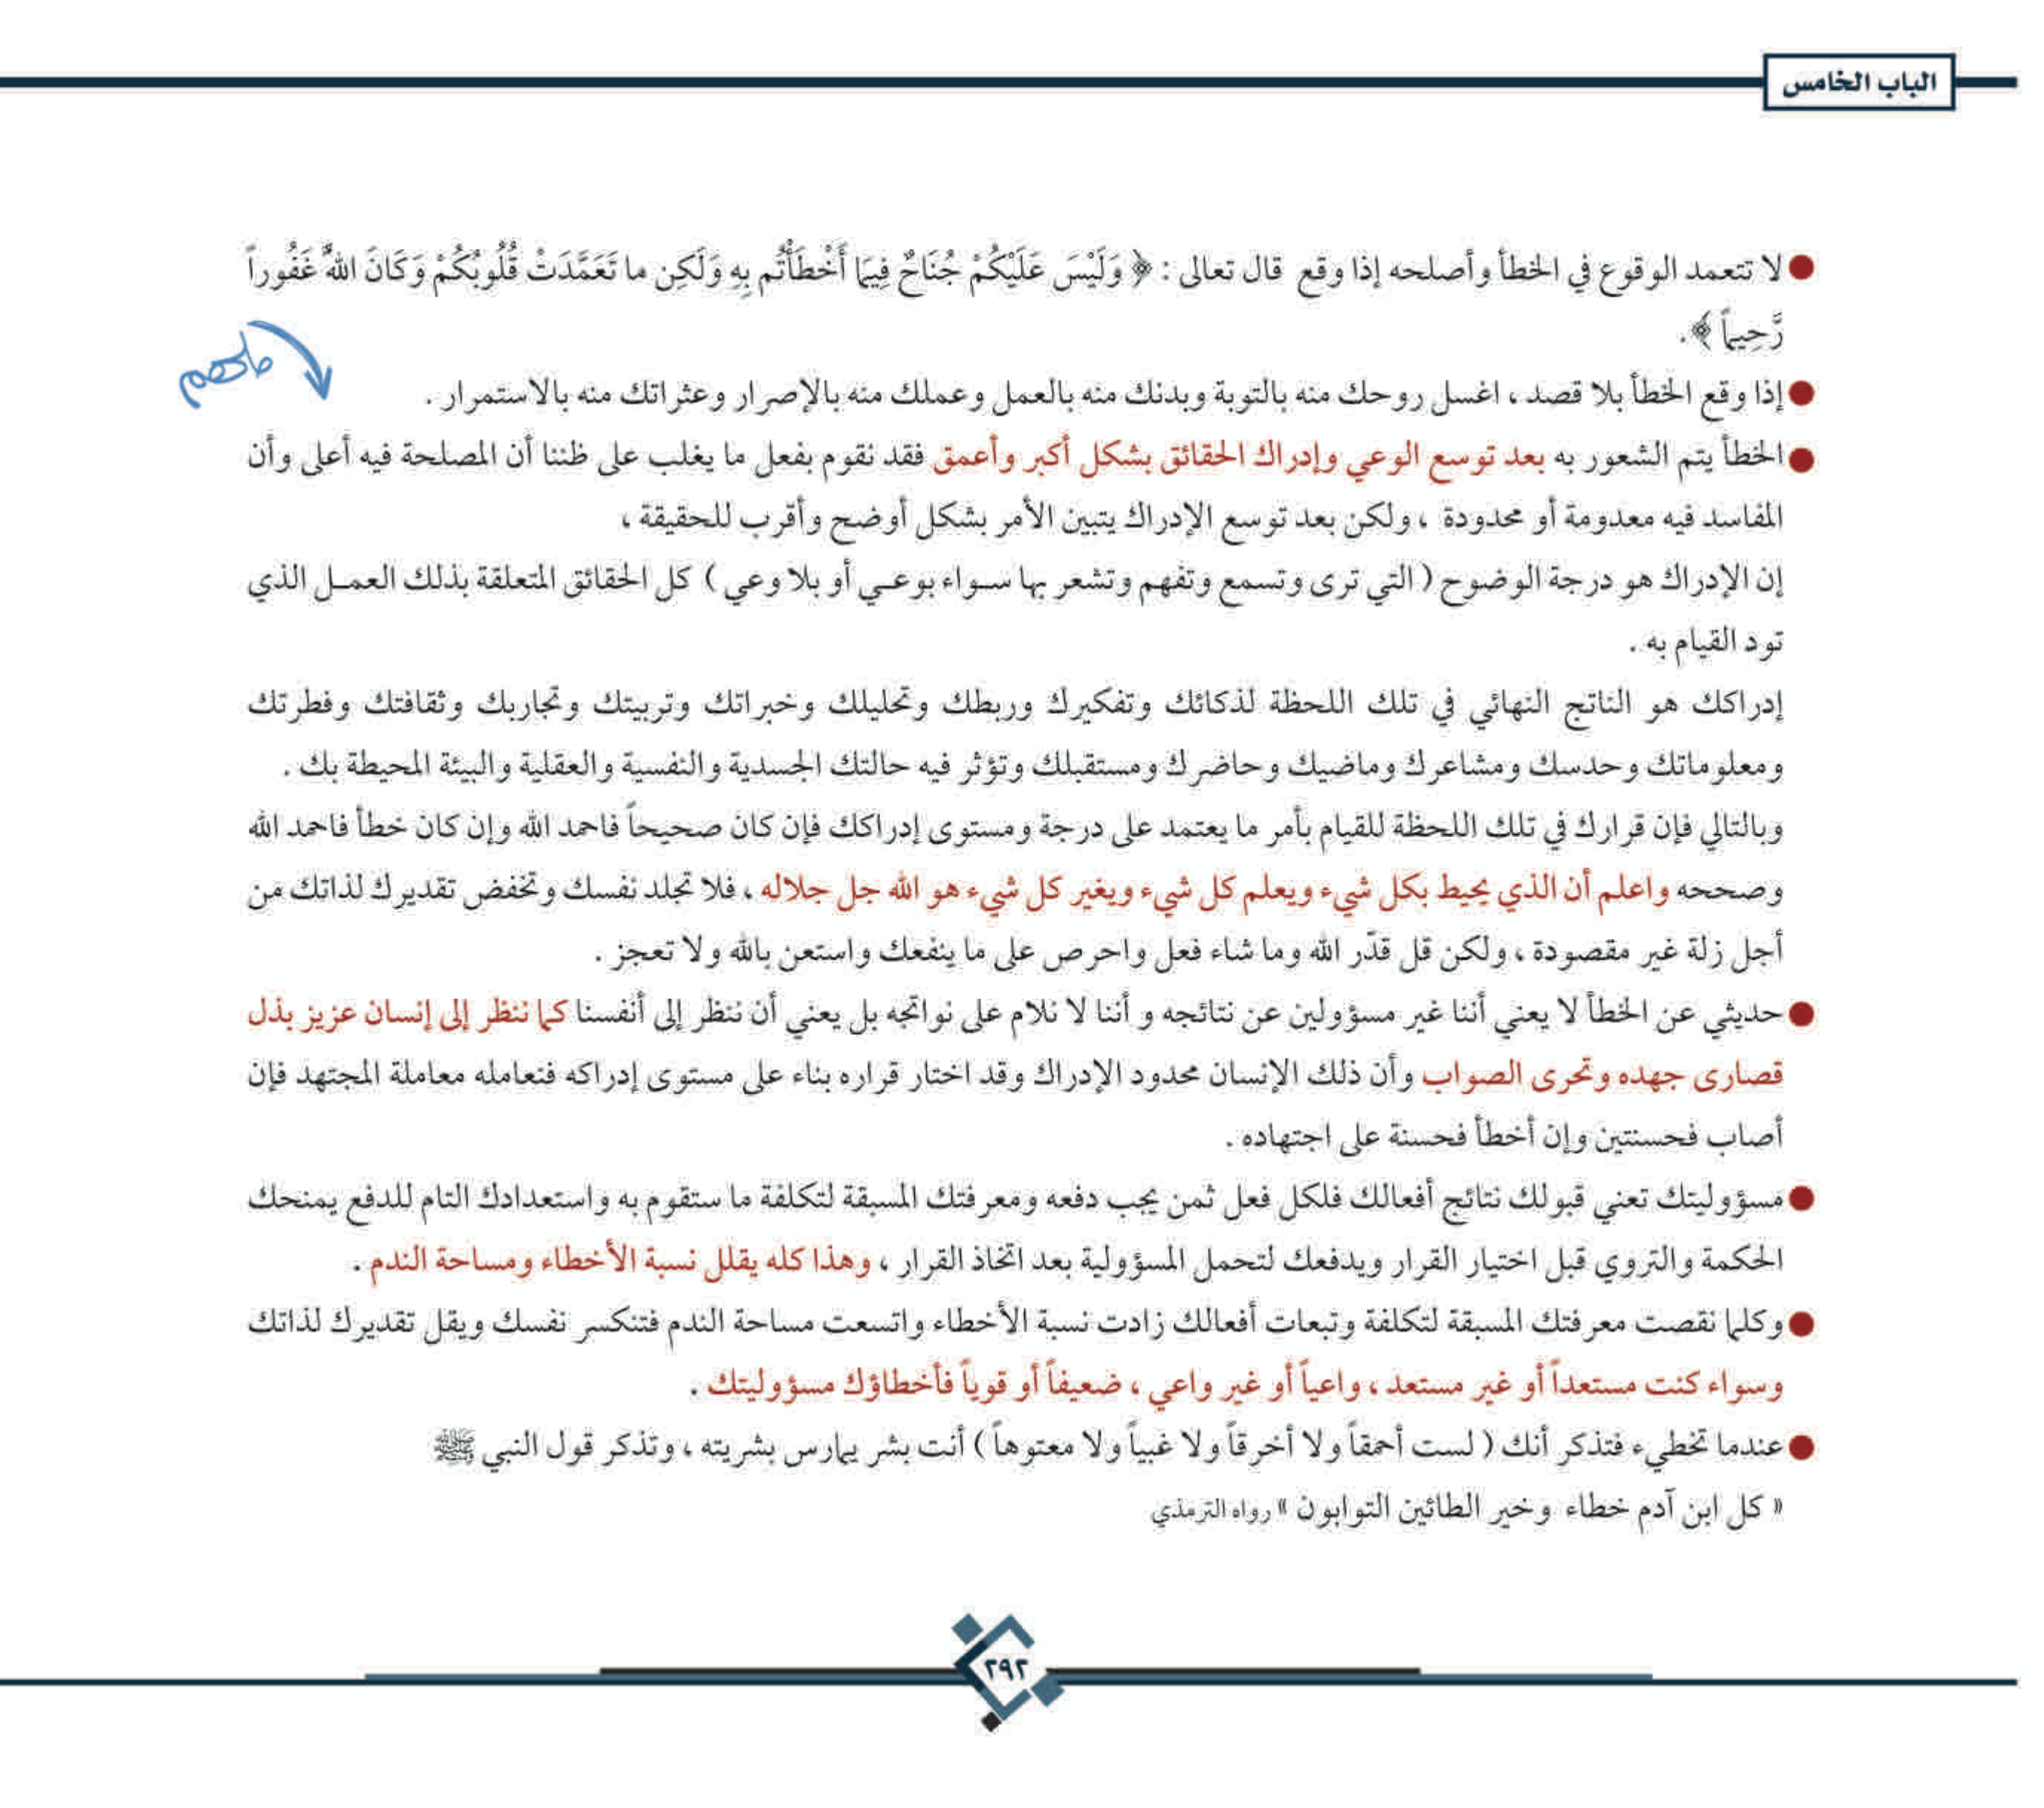 الباب الخامس
لا تتعمد الوقوع في الخطأ وأصلحه إذا وقع قال تعالى : ﴿ وَلَيْسَ عَلَيْكُمْ جُنَاحٌ فِيمَا أَخْطَأْتُم بِهِ وَلَكِن ما تَعَمَّدَتْ قُلُوبُكُمْ وَكَانَ اللهُ غَفُوراً
رَّحِيماً ﴾.
ملهم
إذا وقع الخطأ بلا قصد ، اغسل روحك منه بالتوبة وبدنك منه بالعمل وعملك منه بالإصرار وعثراتك منه بالاستمرار .
الخطأ يتم الشعور به بعد توسع الوعي وإدراك الحقائق بشكل أكبر وأعمق فقد نقوم بفعل ما يغلب على ظننا أن المصلحة فيه أعلى وأن
المفاسد فيه معدومة أو محدودة ، ولكن بعد توسع الإدراك يتبين الأمر بشكل أوضح وأقرب للحقيقة ،
إن الإدراك هو درجة الوضوح ( التي ترى وتسمع وتفهم وتشعر بها سواء بوعي أو بلا وعي ) كل الحقائق المتعلقة بذلك العمل الذي
تود القيام به .
إدراكك هو الناتج النهائي في تلك اللحظة لذكائك وتفكيرك وربطك وتحليلك وخبراتك وتربيتك وتجاربك وثقافتك وفطرتك
ومعلوماتك وحدسك ومشاعرك وماضيك وحاضرك ومستقبلك وتؤثر فيه حالتك الجسدية والنفسية والعقلية والبيئة المحيطة بك .
وبالتالي فإن قرارك في تلك اللحظة للقيام بأمر ما يعتمد على درجة ومستوى إدراكك فإن كان صحيحاً فاحمد الله وإن كان خطأ فاحمد الله
وصححه واعلم أن الذي يحيط بكل شيء ويعلم كل شيء ويغير كل شيء هو الله جل جلاله ، فلا تجلد نفسك وتخفض تقديرك لذاتك من
أجل زلة غير مقصودة ، ولكن قل قدّر الله وما شاء فعل واحرص على ما ينفعك واستعن بالله ولا تعجز .
حديثي عن الخطأ لا يعني أننا غير مسؤولين عن نتائجه و أننا لا نلام على نواتجه بل يعني أن ننظر إلى أنفسنا كما ننظر إلى إنسان عزيز بذل
قصارى جهده وتحرى الصواب وأن ذلك الإنسان محدود الإدراك وقد اختار قراره بناء على مستوى إدراكه فنعامله معاملة المجتهد فإن
أصاب فحسنتين وإن أخطأ فحسنة على اجتهاده .
مسؤوليتك تعني قبولك نتائج أفعالك فلكل فعل ثمن يجب دفعه ومعرفتك المسبقة لتكلفة ما ستقوم به واستعدادك التام للدفع يمنحك
الحكمة والتروي قبل اختيار القرار ويدفعك لتحمل المسؤولية بعد اتخاذ القرار ، وهذا كله يقلل نسبة الأخطاء ومساحة الندم .
وكلما نقصت معرفتك المسبقة لتكلفة وتبعات أفعالك زادت نسبة الأخطاء واتسعت مساحة الندم فتنكسر نفسك ويقل تقديرك لذاتك
وسواء كنت مستعداً أو غير مستعد ، واعياً أو غير واعي ، ضعيفاً أو قوياً فأخطاؤك مسؤوليتك .
عندما تخطيء فتذكر أنك ( لست أحمقاً ولا أخرقاً ولا غبياً ولا معتوهاً ) أنت بشر يمارس بشريته ، وتذكر قول النبي ﷺ
« كل ابن آدم خطاء وخير الطائين التوابون » رواه الترمذي
٢٩٢